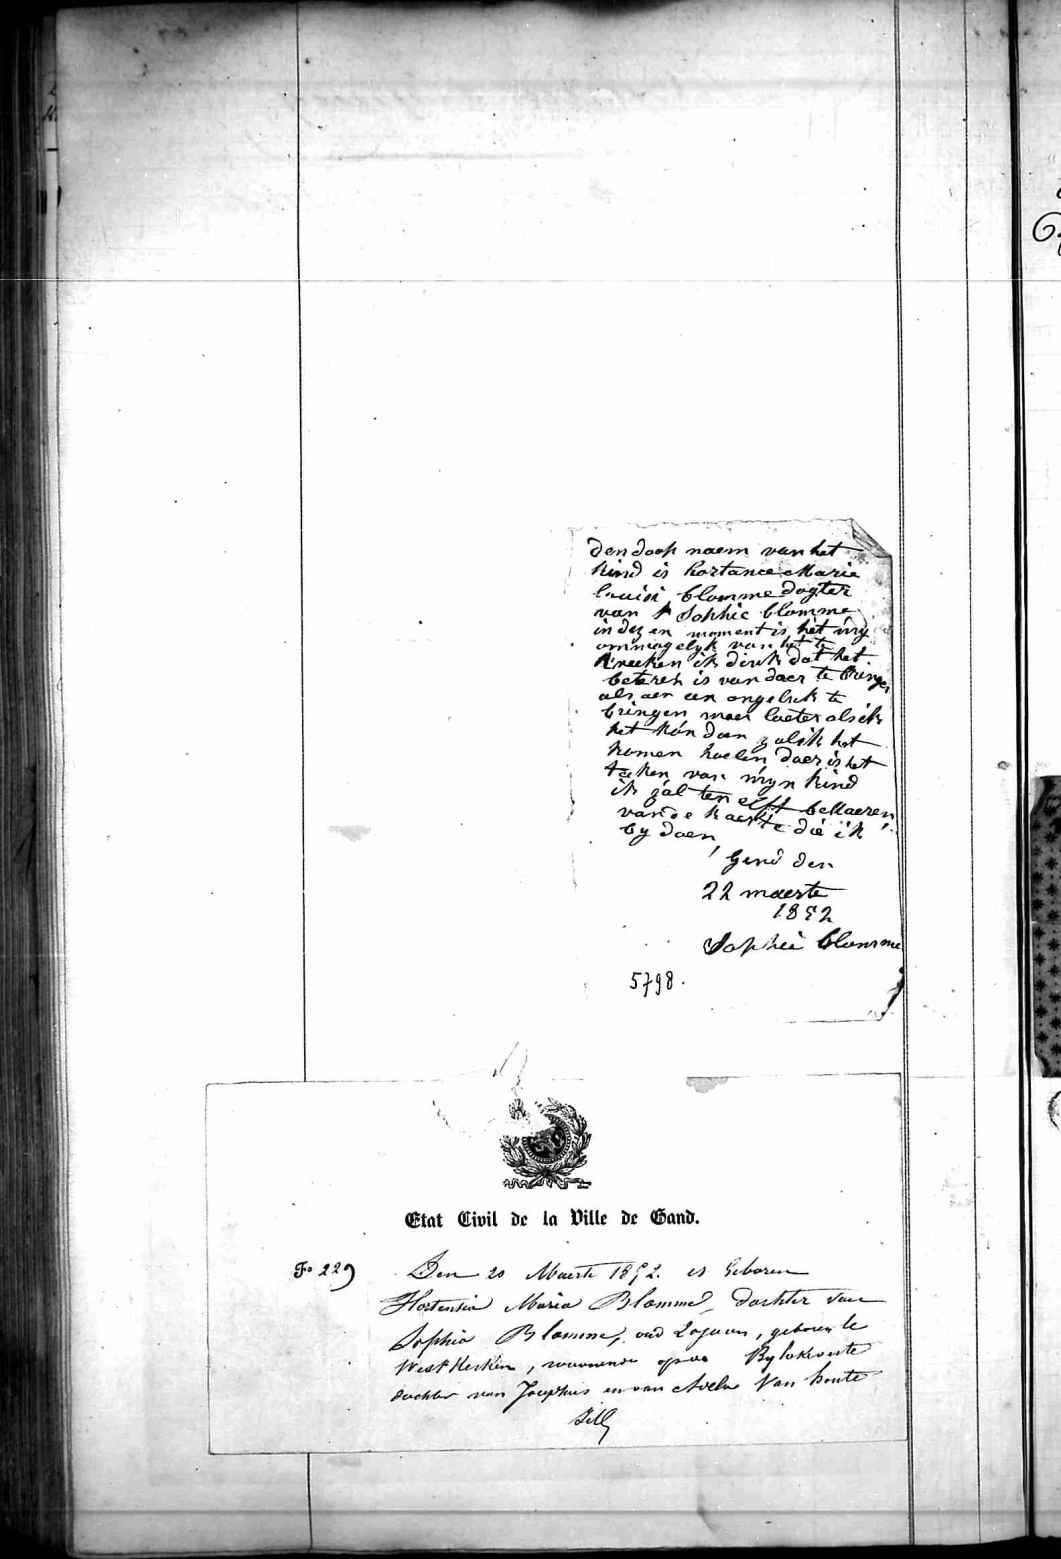 den doop naem van het
kind is hortance Marie
louisi blomme dogter
van Sophie blomme
in dez en moment is het mÿ
ommogelyk van het te
kweeken ik dink dat het
beteren is van daer te bringen
als aer een ongeluk te
bringen maer laeter als ik
het kan doen zal ik het
komen haelen daer is het
teeken van mÿn kind
ik zal ten elft bekaeren
van de kaerte die ik
by doen
Gend den
22 maerte
1852
Sophie blomme
5798.
Etat Civil de la Ville de Gand.
Fo 229
Den 20 Maerte 1852. is Geboren
Hortensia Maria Blomme, dochter van
Sophia Blomme, oud 20 jaren, geboren te
Westkerken, woonende op de Bylokeveste
dochter van Josephus en van Adela Van houte